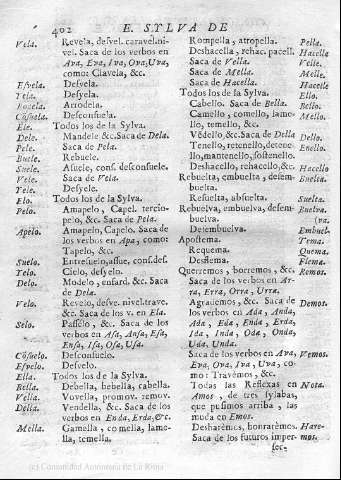 402 E. SYLVA DE
Vela. Revela, desvel. caravel. ni-
vel. Saca de los verbos en
Ava, Eva, Iva, Ova, Uva,
como: Clavela, &c.
Esvela. Desvela.
Tela. Desyela.
Arrodela.
Cõsuela. Desconsuela.
Ele. Todos los de la Sylva.
Dele. Mandele &c. Saca de Dela.
Pele. Saca de Pela.
Buele. Rebuele.
Suele. Asuele, cons. desconsuele.
Vele. Saca de Vela.
Yele. Desyele.
Elo. Todos los de la Sylva.
Pelo. Amapelo, Capel. tercio-
pelo, &c. Saca de Pela.
Apelo. Amapelo, Capelo. Saca de
los verbos en Apa, como:
Tapelo, &c.
Suelo. Entresuelo, assue. cons. des.
Telo. Cielo, desyelo.
Delo. Modelo, ensard. &c. Saca
de Dela.
Velo. Revelo, desve. nivel. trave.
&c. Saca de los v. en Ela.
Selo. Passelo, &c. Saca de los
verbos en Asa, Ansa, Esa,
Ensa, Isa, Osa, Usa.
Cõsuelo. Desconsuelo.
Espelo. Desvelo.
Ella. Todos los de la Sylva.
Bella. Debella, bebella, cabella.
Vella. Vovella, promov. remov.
Della. Vendella, &c. Saca de los
verbos en Enda, Erda, &c.
Mella. Gamella, comella, lame-
lla, temella.
Rompella, atropella. Pella.
Deshacella, rehac. pacell. Hacella
Saca de Vella. Velle.
Saca de Mella. Melle.
Saca de Hacella. Hacelle
Todos los de la Sylva. Ello.
Cabello. Saca de Bella. Bello.
Camello, comello, lame- Mello.
llo, temello, &c.
Vẽdello &c. Saca de Della Dello.
Tenello, retenello, deten- Enello.
ello, mantenello, sostenello.
Deshacello, rehacello, &c. Hacello
Rebuelta, embuelta, desem- Buelta.
buelta.
Resuelta, absuelta. Suelta.
Rebuelva, embuelva, desem- Buelva.
buelva.
Desembuelva. Embuel-
Apostema. Tema.
Requema. Quema.
Desflema. Flema.
Querremos, borremos, &c. Remos.
Saca de los verbos en Ar-
ra, Erra, Orra, Urra.
Agrademos, &c. Saca de Demos.
los verbos en Ada, Anda,
Ada, Eda, Enda, Erda,
Ida, Inda, Oda, Onda,
Uda, Unda.
Saca de los verbos en Ava, Vemos.
Eva, Ova, Iva, Uva, co-
mo: Travemos, &c.
Todas las Reflexas en Nota.
Amos, de tres sylabas,
que pusimos arriba, las
muda en Emos.
Desharémos, honrarémos. Hare-
Saca de los futuros imper- mos.
fec-
(c) Comunidad Autónoma de La Rioja